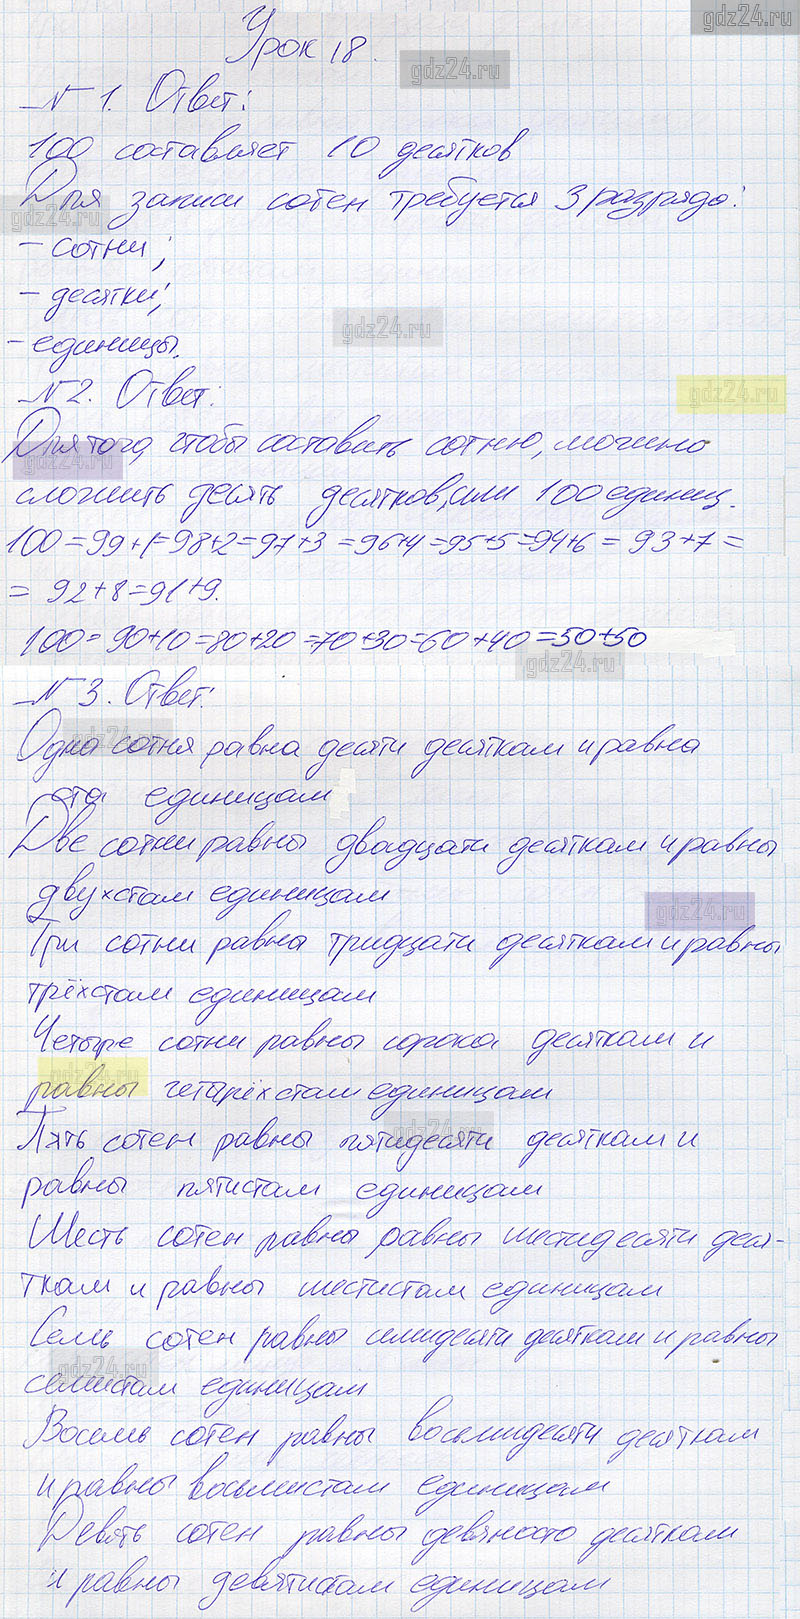 gdz24.ru
Урок 18.
gdz24.ru
№ 1. Ответ:
100 составляет 10 десятков
Для записи сотен требуется 3 разряда:
gdz24.ru
- сотни;
- десятки;
gdz24.ru
- единицы.
№ 2. Ответ:
gdz24.ru
Для того, чтобы составить сотню, можно
gdz24.ru
сложить десять десятков, или 100 единиц.
100 = 99 + 1 = 98 + 2 = 97 + 3 = 96 + 4 = 95 + 5 = 94 + 6 = 93 + 7 =
= 92 + 8 = 91 + 9.
100 = 90 + 10 = 80 + 20 = 70 + 30 = 60 + 40 = 50 + 50
gdz24.ru
№ 3. Ответ:
gdz24.ru
Одна сотня равна десяти десяткам и равна
ста единицам
Две сотни равны двадцати десяткам и равны
двухстам единицам
gdz24.ru
Три сотни равны тридцати десяткам и равны
трёхстам единицам
Четыре сотни равны сорока десяткам и
gdz24.ru
равны четырёхстам единицам
gdz24.ru
Пять сотен равны пятидесяти десяткам и
равны пятистам единицам
Шесть сотен равны равны шестидесяти деся-
ткам и равны шестистам единицам
Семь сотен равны семидесяти десяткам и равны
gdz24.ru
семистам единицам
Восемь сотен равны восьмидесяти десяткам
и равны восьмистам единицам
Девять сотен равны девяносто десяткам
и равны девятистам единицам